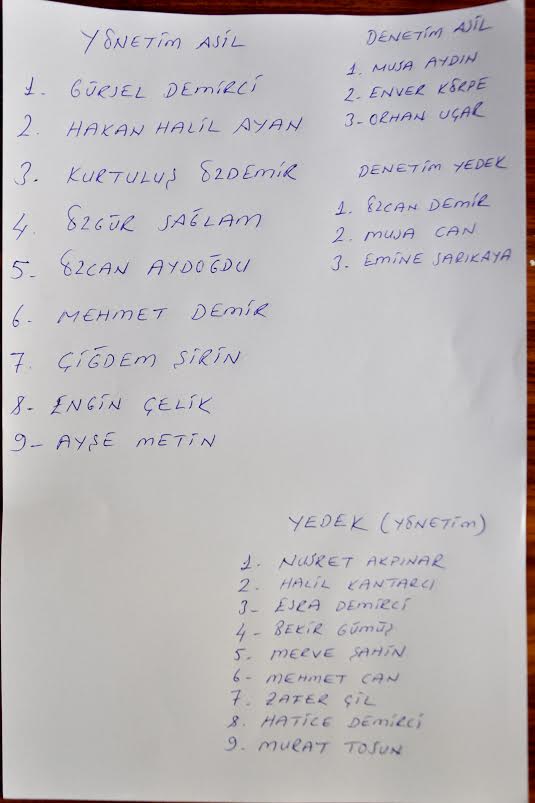 YÖNETİM ASİL
1. GÜRSEL DEMİRCİ
2. HAKAN HALİL AYAN
3. KURTULUŞ ÖZDEMİR
4. ÖZGÜR SAĞLAM
5- ÖZCAN AYDOĞDU
6. MEHMET DEMİR
7. ÇİĞDEM ŞİRİN
8- ENGİN ÇELİK
9- AYŞE METİN
DENETİM ASİL
1. MUSA AYDIN
2. ENVER KÖRPE
3- ORHAN UÇAR
DENETİM YEDEK
1. ÖZCAN DEMİR
2. MUSA CAN
3. EMİNE SARIKAYA
YEDEK (YÖNETİM)
1. NUSRET AKPINAR
2. HALİL KANTARCI
3- ESRA DEMİRCİ
4- BEKİR GÜMÜŞ
5. MERVE ŞAHİN
6- MEHMET CAN
7. ZAFER ÇİL
8. HATİCE DEMİRCİ
9. MURAT TOSUN